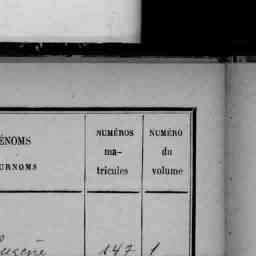 ÉNOMS
URNOMS
NUMÉROS
ma-
tricules
NUMÉRO
du
volume
Eugène 147 1